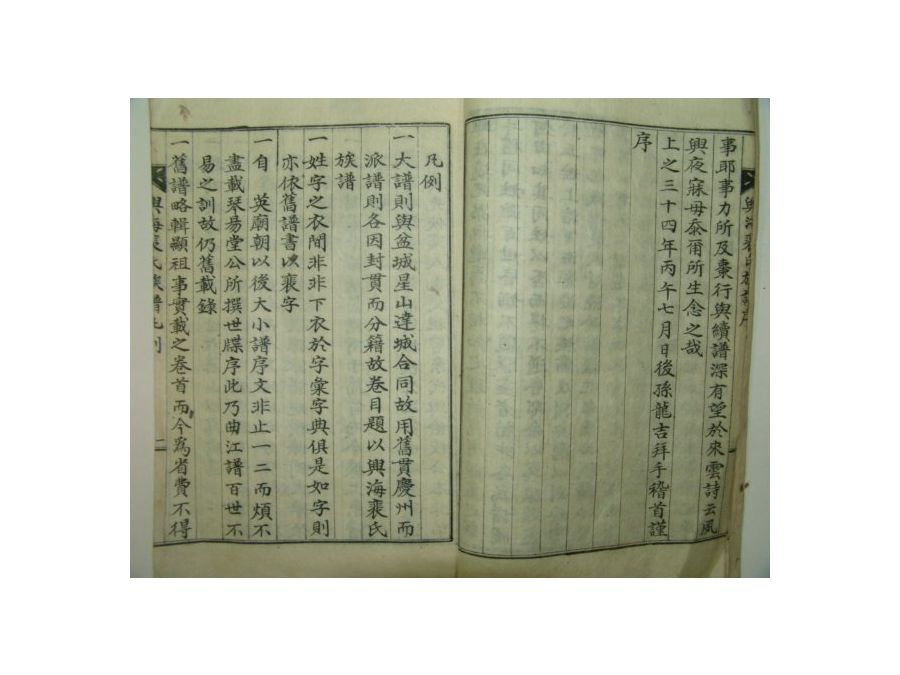 事耶事力所及棗行與續譜深有望於來雲詩云風
興夜寐毋忝爾所生念之哉
上之三十四年丙午七月日後孫龍吉拜手稽首謹
序
凡例
一大譜則與盆城星山達城合同故用舊貫慶州而
派譜則各因封貫而分籍故卷目題以興海裵氏
族譜
一姓字之衣間非非下衣於字彙字典俱是如字則
亦依舊譜書以裵字
一自 英廟朝以後大小譜序文非止一二而煩不
盡載琴易堂公所撰世牒序此乃曲江譜百世不
易之訓故仍舊載錄
一舊譜略輯顯祖事實載之卷首而今為省費不得
興海裵氏族譜凡例
二